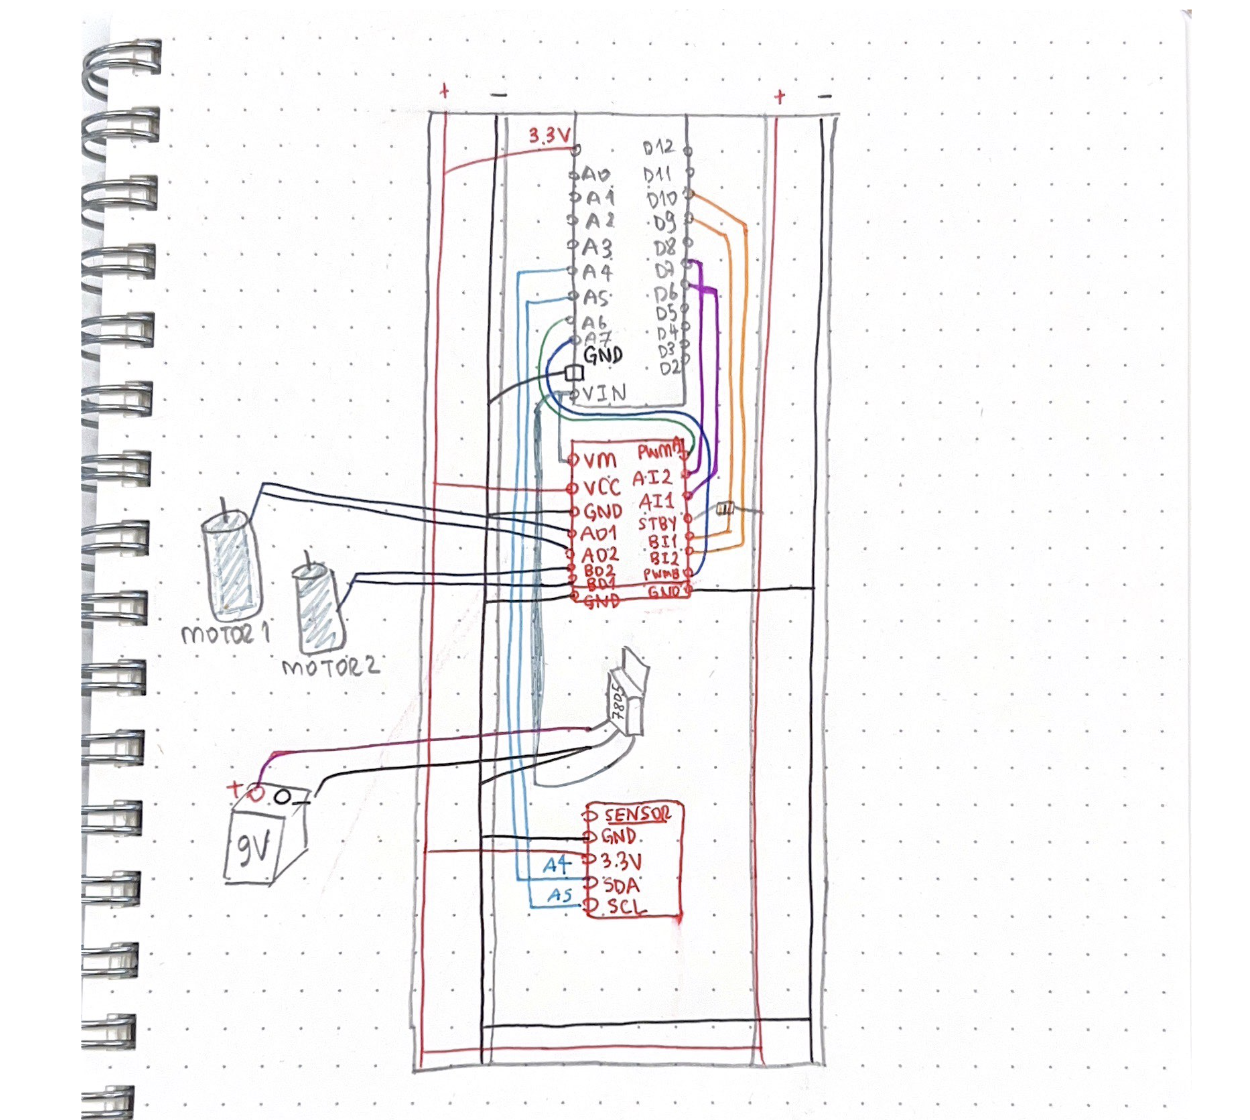 + − + −
3.3V
D12
A0 D11
A1 D10
A2 D9
A3 D8
A4 D7
A5 D6
D5
A6 D4
A7 D3
GND D2
VIN
VM PWMA
VCC AI2
GND AI1
STBY
A01 BI1
A02 BI2
B02 PWMB
B01
GND GND
MOTOR 1
MOTOR 2
7805
+ −
9V
SENSOR
GND
A4 3.3V
SDA
A5 SCL